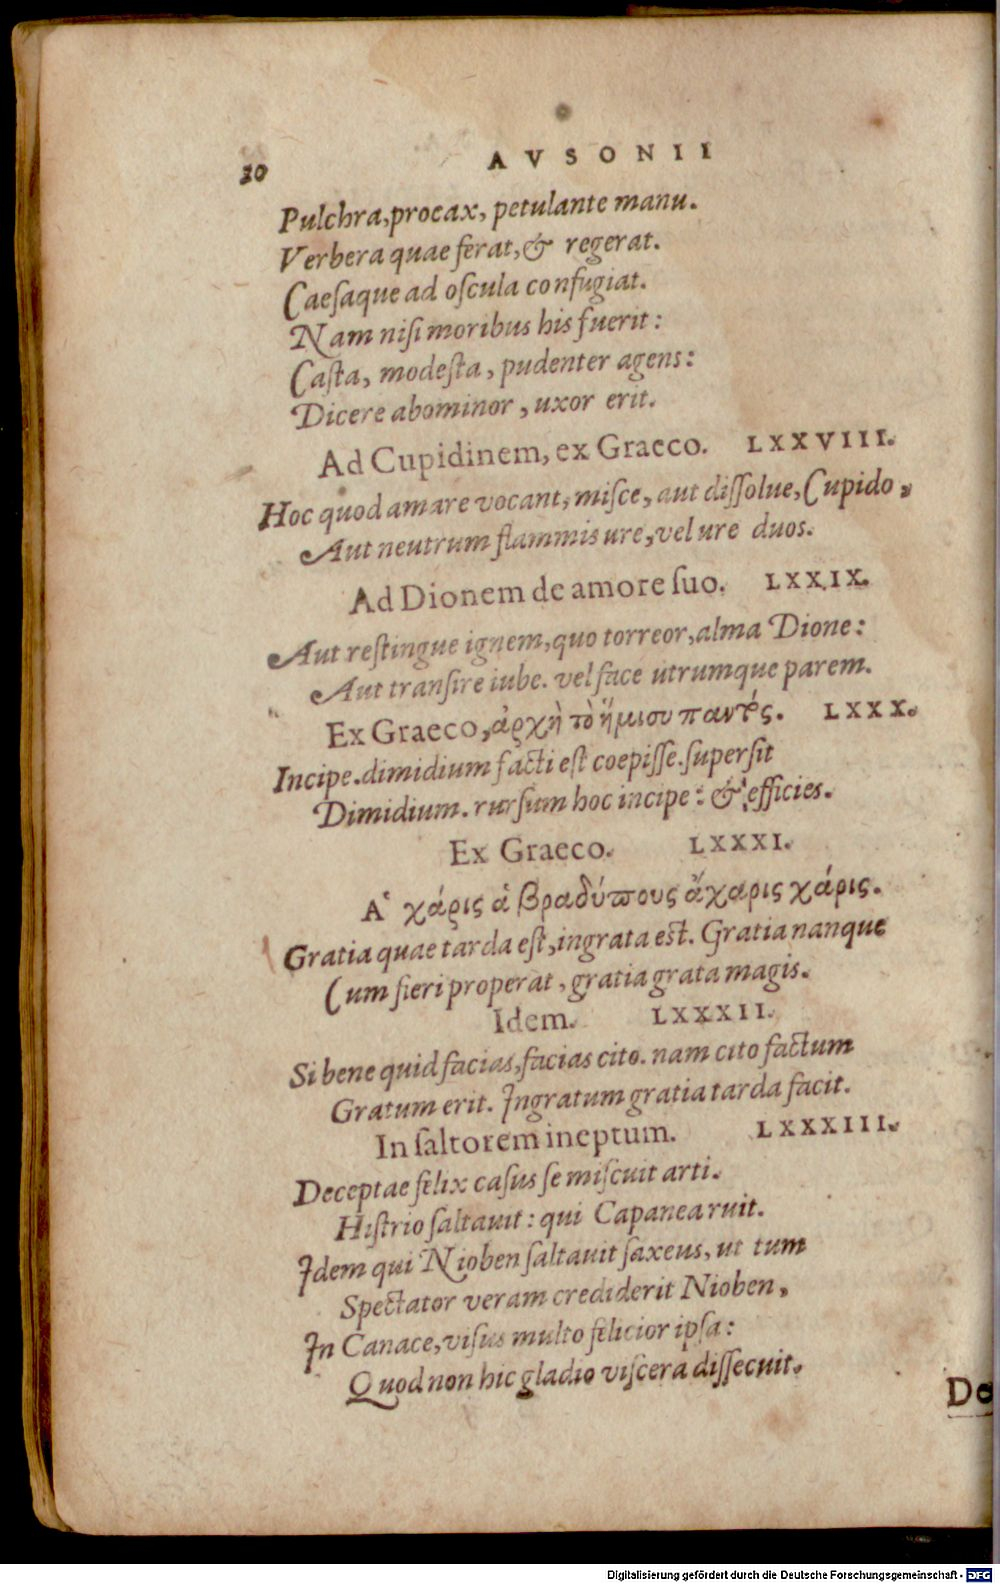 20 AVSONII
Pulchra, procax, petulante manu.
Verbera quae ferat, & regerat.
Caeſaque ad oſcula confugiat.
Nam niſi moribus his fuerit:
Caſta, modeſta, pudenter agens:
Dicere abominor, uxor erit.
Ad Cupidinem, ex Graeco. LXXVIII.
Hoc quod amare vocant, miſce, aut diſſolue, Cupido,
Aut neutrum flammis ure, vel ure duos.
Ad Dionem de amore ſuo. LXXIX.
Aut reſtingue ignem, quo torreor, alma Dione:
Aut tranſire iube. vel face utrumque parem.
Ex Graeco, ἀρχὴ τὸ ἥμισυ παντός. LXXX.
Incipe. dimidium facti eſt coepiſſe. ſuperſit
Dimidium. rurſum hoc incipe: & efficies.
Ex Graeco. LXXXI.
Ἁ χάρις ἁ βραδύπους ἄχαρις χάρις.
Gratia quae tarda eſt, ingrata est. Gratia nanque
Cum fieri properat, gratia grata magis.
Idem. LXXXII.
Si bene quid facias, facias cito. nam cito factum
Gratum erit. Ingratum gratia tarda facit.
In ſaltorem ineptum. LXXXIII.
Deceptae felix caſus ſe miſcuit arti.
Hiſtrio ſaltauit: qui Capanea ruit.
Idem qui Nioben ſaltauit ſaxeus, ut tum
Spectator veram crediderit Nioben,
In Canace, viſus multo felicior ipſa:
Quod non hic gladio viſcera diſſecuit.
De
Digitalisierung gefördert durch die Deutsche Forschungsgemeinschaft - DFG